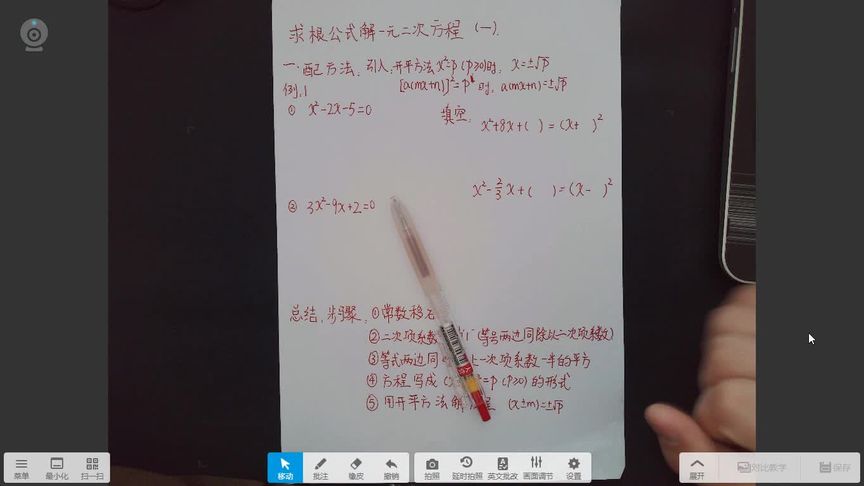 求根公式解一元二次方程 (一).
一.配方法. 引入,开平方法x²=p(p≥0)时, x=±√p
例.1 [a(mx+n)]²=p 时, a(mx+n)=±√p
① x²-2x-5=0 填空.
x²+8x+( )=(x+ )²
x²-2/3x+( )=(x- )²
② 3x²-9x+2=0
总结.步骤. ①常数移
②二次项系数 "1"(等号两边同除以二次项系数)
③等式两边同 上一次项系数一半的平方
④方程写成 ²=p(p≥0)的形式
⑤用开平方法解 (x±m)=±√p
菜单 最小化 扫一扫 移动 批注 橡皮 撤销 拍照 延时拍照 英文批改 画面调节 设置 展开 对比教学 保存